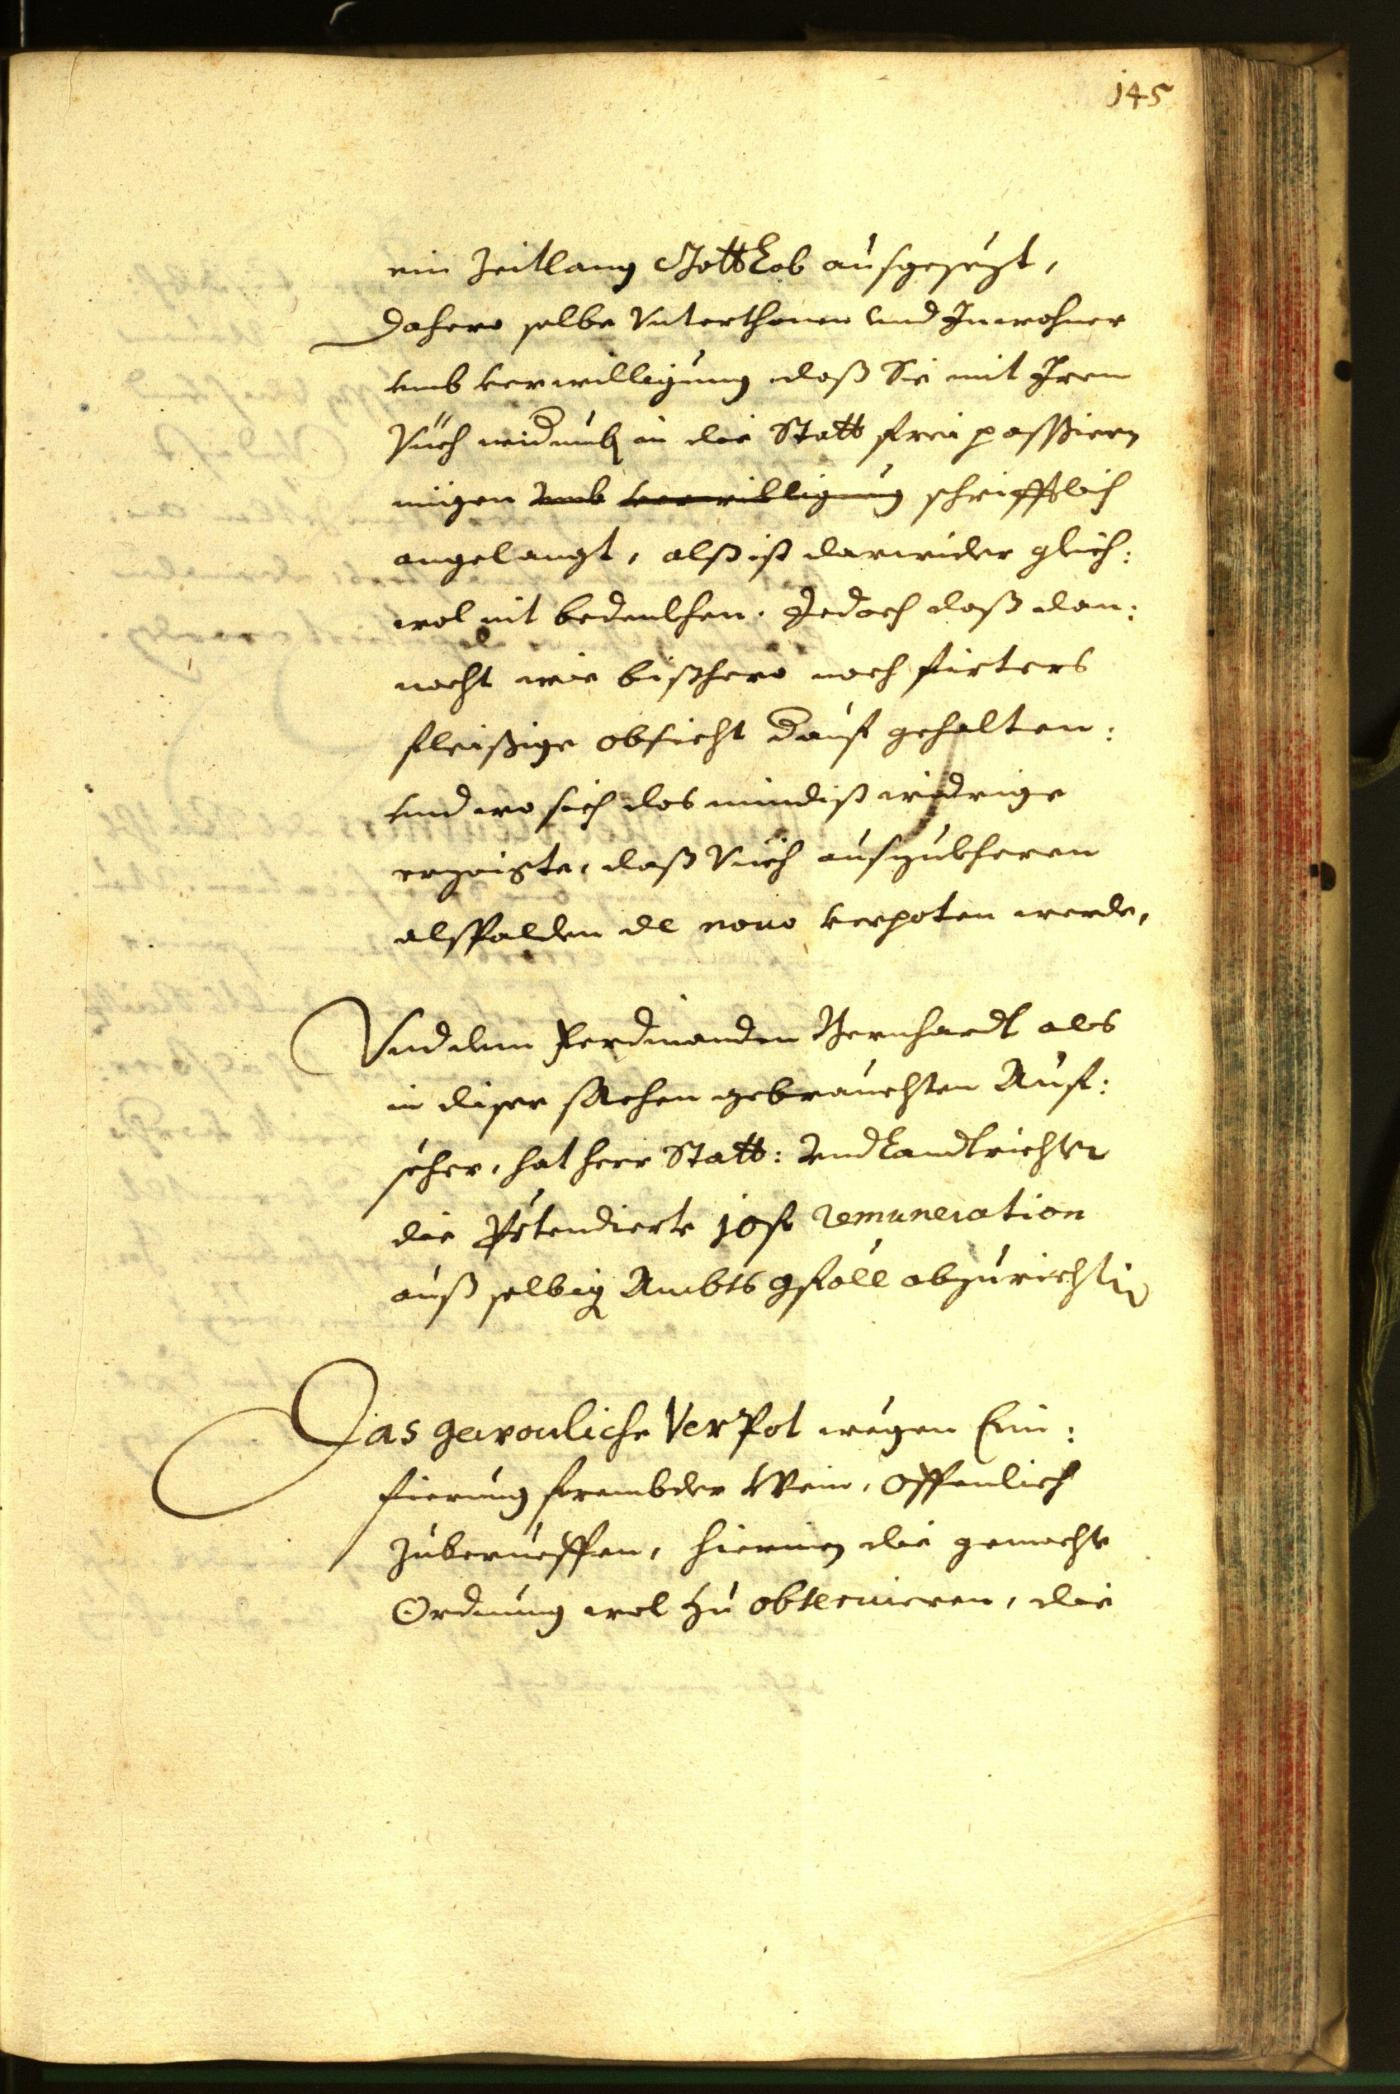 145
ein Zeitlang Gott Lob ausgesezt,
Dahero selbe Unterthonen und Inwohner
umb verwilligung daß Sie mit Iren
Vüch widrumb in die Statt frei passiern
mügen umb verwilligung schrifftlich
angelangt, alß ist darwider gleich:
wol nit bedenkhen. Jedoch daß dan:
nocht wie bißhero noch firters
fleißige obsicht drauf gehalten:
und wo sich das mindist widrige
erzaigte, daß Vüch auszukheren
alßpalden de novo verpoten werde,
Und dem Ferdinanden Bernhardt als
in diser sachen gebrauchten Auf:
seher, hat herr Statt: und Landtrichter
die Pretendierte 10 f remuneration
auß selbig Ambts gföll abzurichten
Das gewonliche Verpot wegen Ein:
fierung frembder Wein, offenlich
zuberueffen, hierinen die gemachte
Ordnung wol zu observieren, die